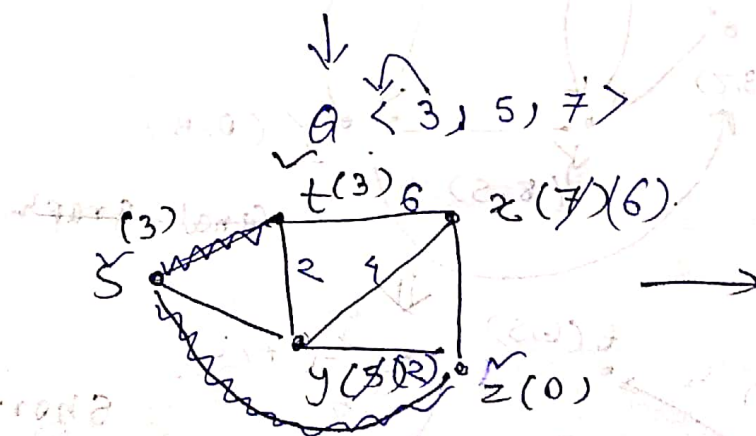 Q < 3, 5, 7 >
t (3) 6 x (7) (6)
(3)
S 2 4
y (5) (2) z (0)